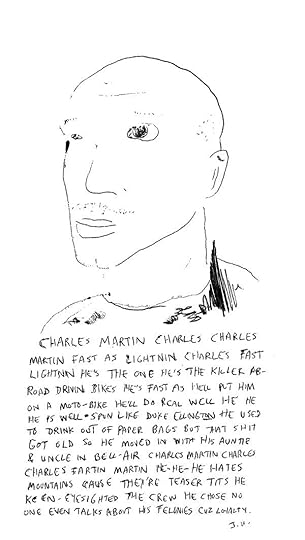 CHARLES MARTIN CHARLES CHARLES
MARTIN FAST AS LIGHTNIN CHARLES FAST
LIGHTNIN HE'S THE ONE HE'S THE KILLER AB-
ROAD DRIVIN BIKES HE'S FAST AS HELL PUT HIM
ON A MOTO-BIKE HE'LL DO REAL WELL HE HE
HE IS WELL-SPUN LIKE DUKE ELLINGTON HE USED
TO DRINK OUT OF PAPER BAGS BUT THAT SHIT
GOT OLD SO HE MOVED IN WITH HIS AUNTIE
& UNCLE IN BELL-AIR CHARLES MARTIN CHARLES
CHARLES FARTIN MARTIN HE-HE-HE HATES
MOUNTAINS CAUSE THEY'RE TEASER TITS HE
KEEN-EYESIGHTED THE CREW HE CHOSE NO
ONE EVEN TALKS ABOUT HIS FELONIES CUZ LOYALTY.